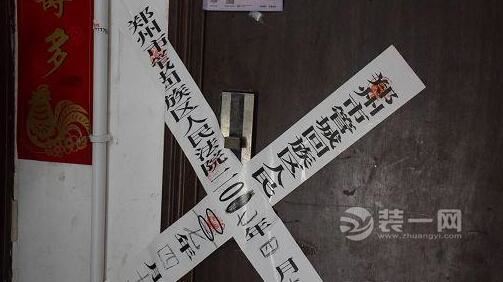 多
郑州市管城回族区人民法院二〇〇七年四月
郑州市管城回族区人民
年四
装一网
www.zhuangyi.com